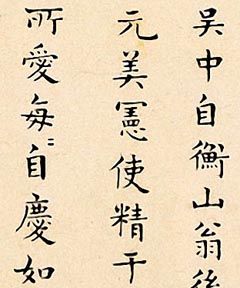 吴中自衡山翁後
元美憲使精于
所愛每〻自慶如